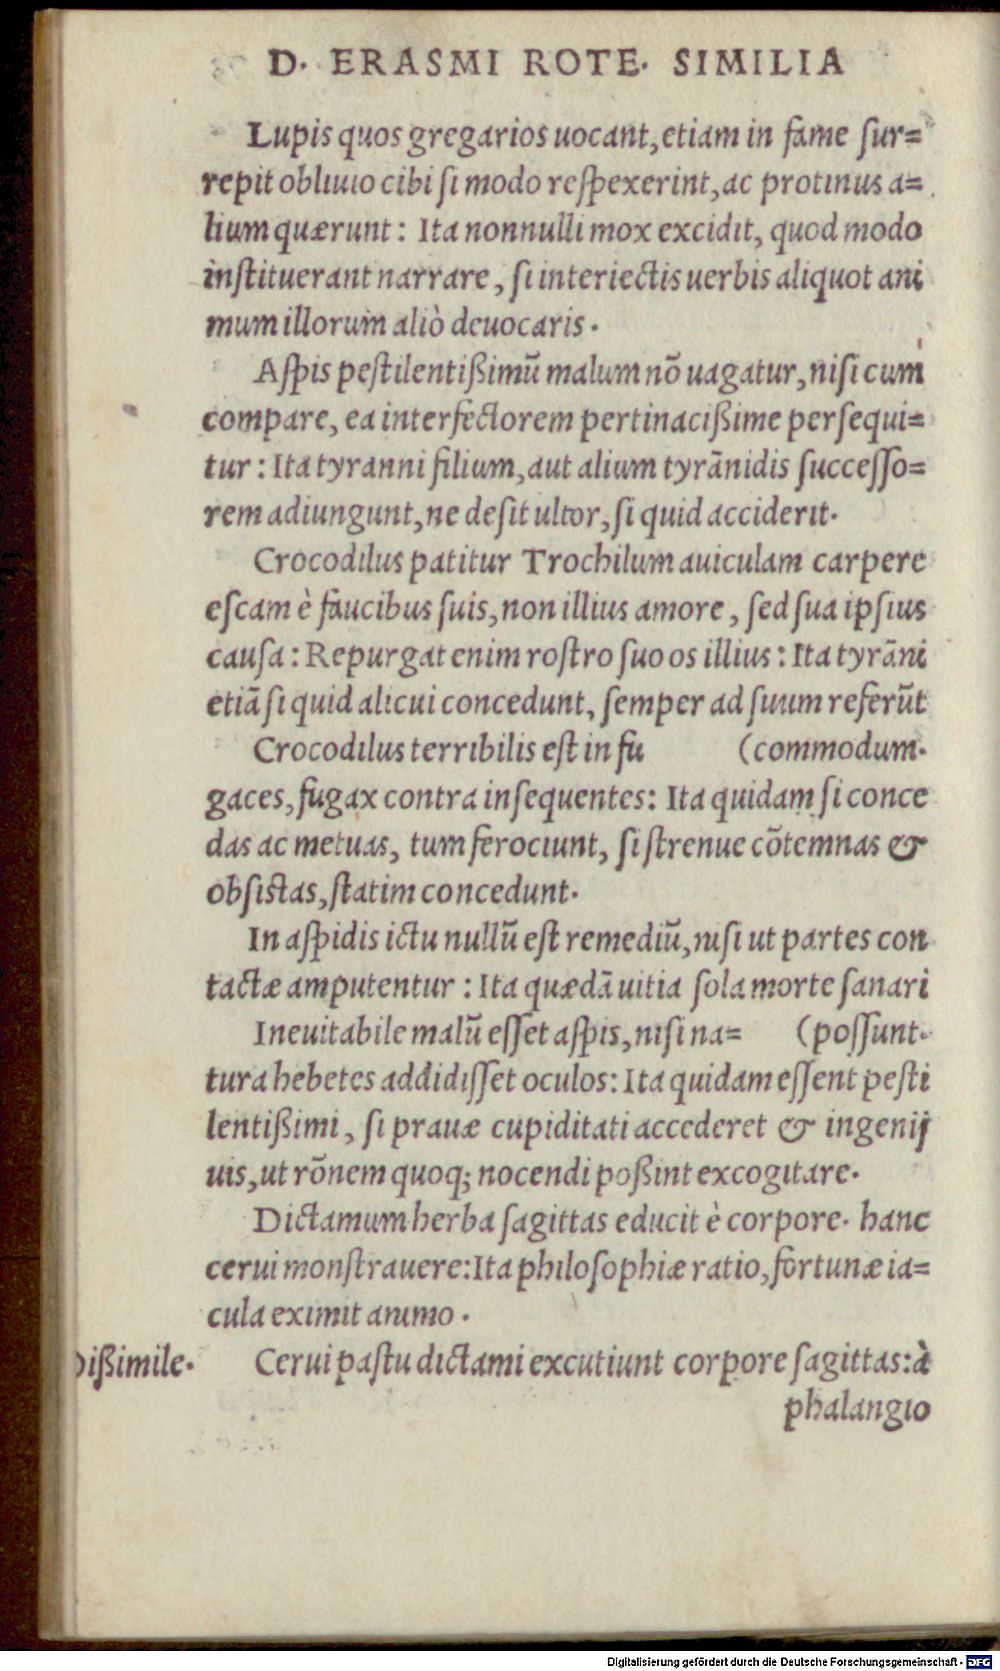 D. ERASMI ROTE. SIMILIA
Lupis quos gregarios uocant, etiam in fame sur=
repit obliuio cibi si modo respexerint, ac protinus a=
lium quærunt: Ita nonnulli mox excidit, quod modo
instituerant narrare, si interiectis uerbis aliquot ani
mum illorum aliò deuocaris.
Aspis pestilentißimũ malum nõ uagatur, nisi cum
compare, ea interfectorem pertinacißime persequi=
tur: Ita tyranni filium, aut alium tyrãnidis successo=
rem adiungunt, ne desit ultor, si quid acciderit.
Crocodilus patitur Trochilum auiculam carpere
escam è faucibus suis, non illius amore, sed sua ipsius
causa: Repurgat enim rostro suo os illius: Ita tyrãni
etiã si quid alicui concedunt, semper ad suum referũt
Crocodilus terribilis est in fu (commodum.
gaces, fugax contra insequentes: Ita quidam si conce
das ac metuas, tum ferociunt, si strenue cõtemnas &
obsistas, statim concedunt.
In aspidis ictu nullũ est remediũ, nisi ut partes con
tactæ amputentur: Ita quædã uitia sola morte sanari
Ineuitabile malũ esset aspis, nisi na= (possunt.
tura hebetes addidisset oculos: Ita quidam essent pesti
lentißimi, si prauæ cupiditati accederet & ingenij
uis, ut rõnem quoq; nocendi poßint excogitare.
Dictamum herba sagittas educit è corpore. hanc
cerui monstrauere: Ita philosophiæ ratio, fortunæ ia=
cula eximit animo.
Dißimile. Cerui pastu dictami excutiunt corpore sagittas: à
phalangio
Digitalisierung gefördert durch die Deutsche Forschungsgemeinschaft - DFG